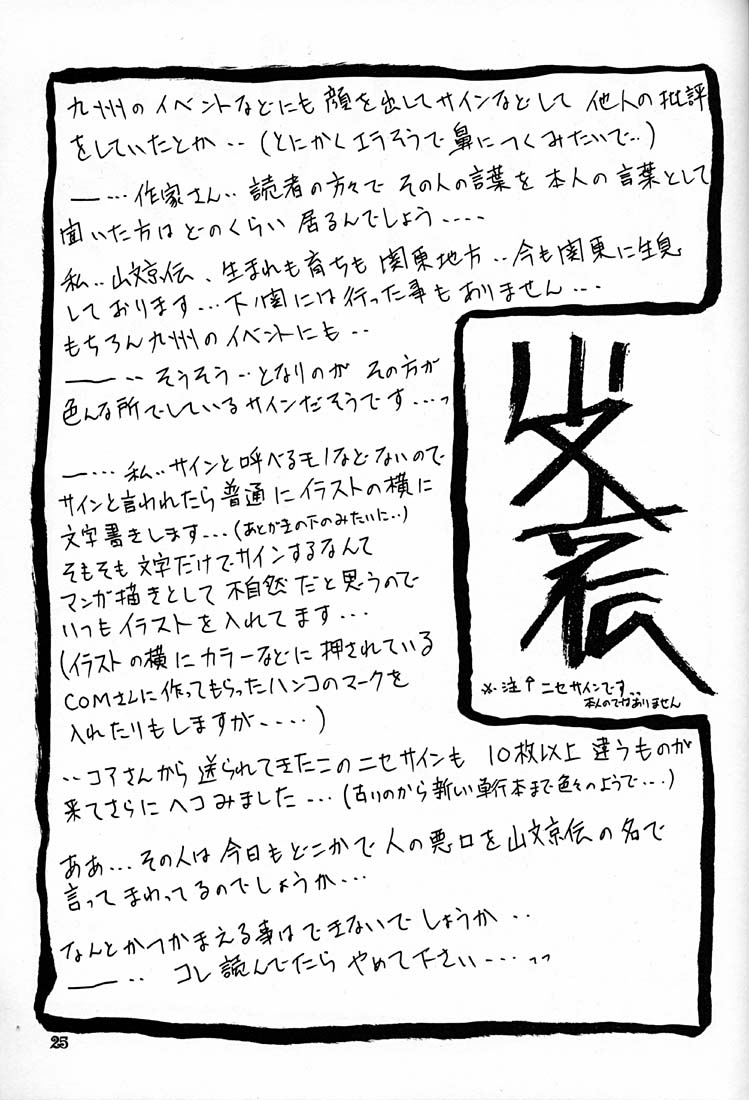 九州のイベントなどにも顔を出してサインなどして 他人の批評
をしていたとか‥(とにかくエラそうで鼻につくみたいで‥)
——…作家さん‥読者の方々で その人の言葉を 本人の言葉として
聞いた方はどのくらい 居るんでしょう‥‥
私‥山文京伝、生まれも育ちも 関東地方‥今も関東に生息
しております…下ノ関には行った事もありません…
もちろん九州のイベントにも‥
——‥そうそう‥となりのが その方が
色んな所でしているサインだそうです…っ
—…私‥サインと呼べるモノなどないので
サインと言われたら普通にイラストの横に
文字書きします…(あとがきの下のみたいに‥)
そもそも文字だけでサインするなんて
マンガ描きとして不自然だと思うので
いつもイラストを入れてます…
(イラストの横にカラーなどに押されている
COMさんに作ってもらったハンコのマークを
入れたりもしますが‥‥)
山文京伝
※注↑ニセサインです‥
本人のではありません
‥コアさんから送られてきたこのニセサインも 10枚以上違うものが
来てさらにヘコみました…(古いのから新しい単行本まで色々のようで…)
ああ…その人は今日もどこかで人の悪口を山文京伝の名で
言ってまわってるのでしょうか…
なんとかつかまえる事はできないでしょうか‥
——‥ コレ読んでたらやめて下さい‥‥っっ
25